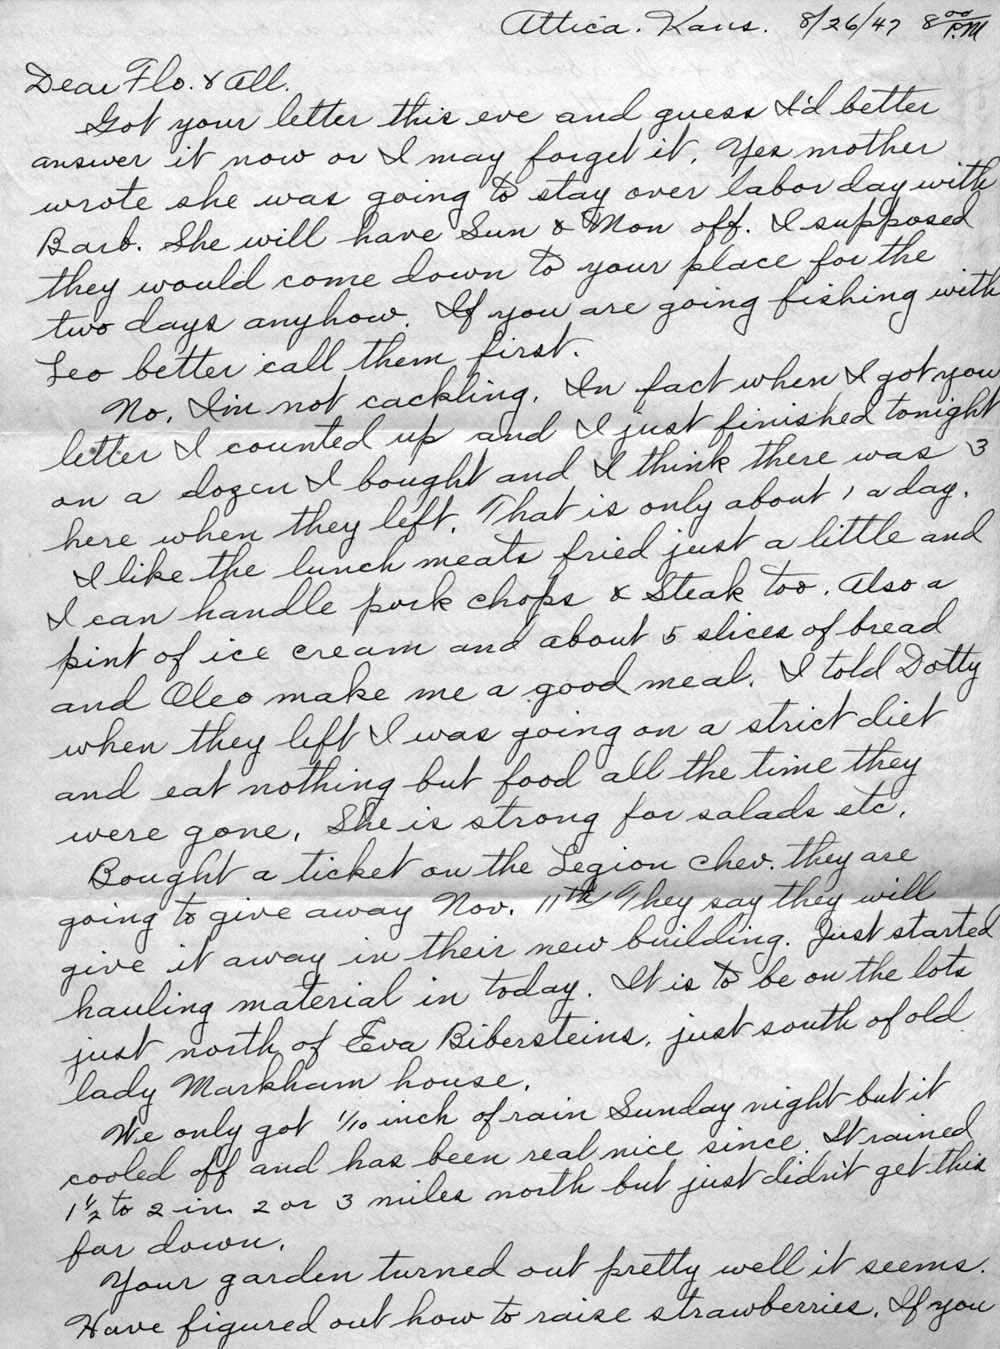 Attica. Kans. 8/26/47 8 00 P.M
Dear Flo. & All.
Got your letter this eve and guess I'd better
answer it now or I may forget it. Yes mother
wrote she was going to stay over labor day with
Barb. She will have Sun & Mon off. I supposed
they would come down to your place for the
two days anyhow. If you are going fishing with
Leo better call them first.
No, I'm not cackling. In fact when I got you
letter I counted up and I just finished tonight
on a dozen I bought and I think there was 3
here when they left. That is only about 1 a day.
I like the lunch meats fried just a little and
I can handle pork chops & Steak too. Also a
pint of ice cream and about 5 slices of bread
and Oleo make me a good meal. I told Dotty
when they left I was going on a strict diet
and eat nothing but food all the time they
were gone. She is strong for salads etc.
Bought a ticket on the Legion Chev. they are
going to give away Nov. 11th They say they will
give it away in their new building. Just started
hauling material in today. It is to be on the lots
just north of Eva Bibersteins, just south of old
lady Markham house.
We only got 1/10 inch of rain Sunday night but it
cooled off and has been real nice since. It rained
1 1/2 to 2 in. 2 or 3 miles north but just didn't get this
far down.
Your garden turned out pretty well it seems.
Have figured out how to raise strawberries. If you